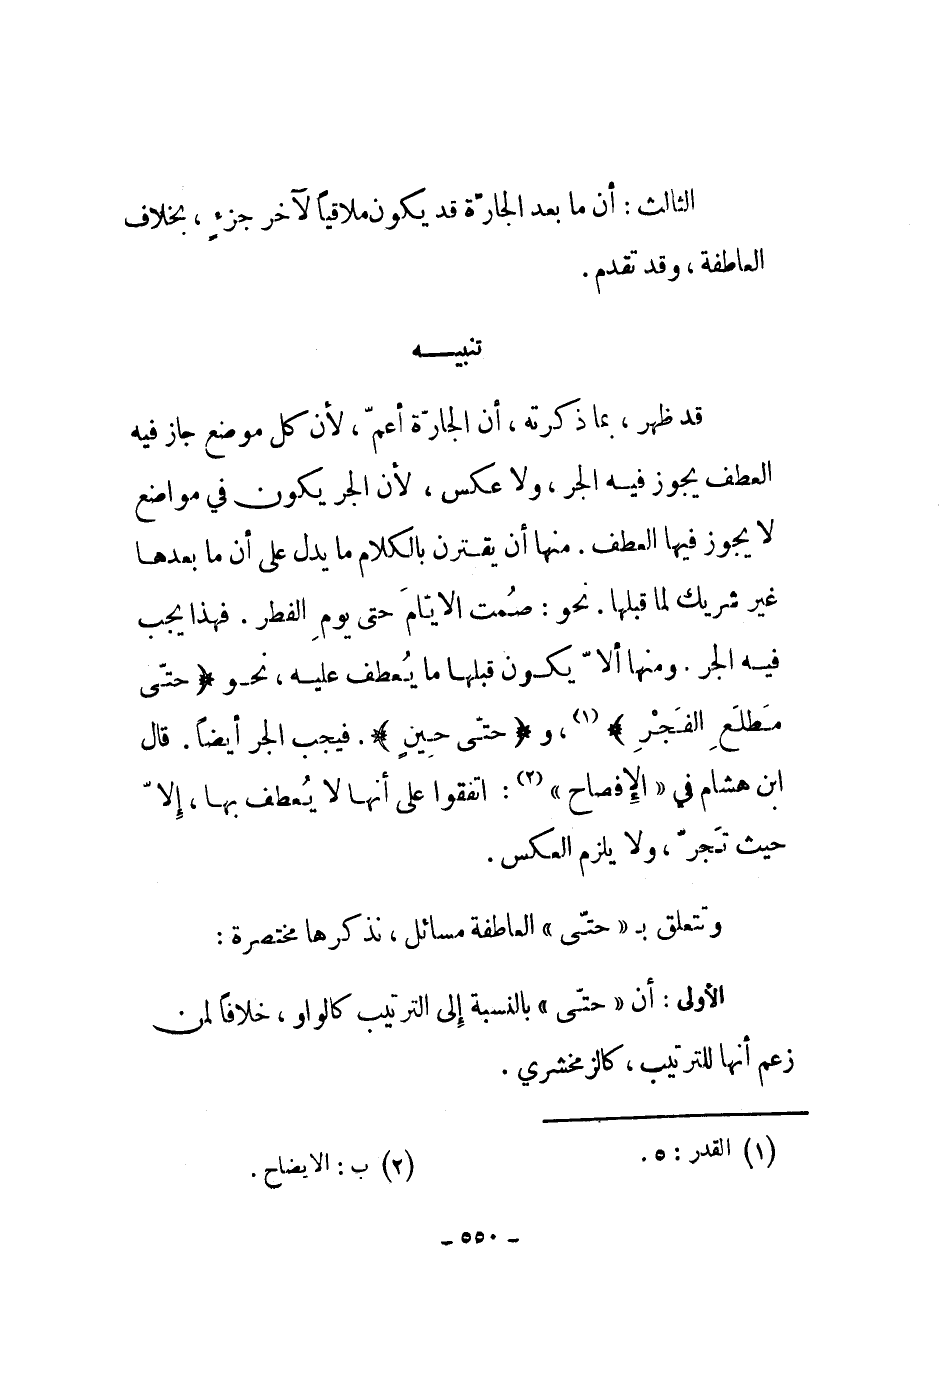 الثالث : أن ما بعد الجارّة قد يكون ملاقياً لآخر جزءٍ ، بخلاف
العاطفة ، وقد تقدم .
تنبيــــه
قد ظهر ، بما ذكرته ، أن الجارّة أعمّ ، لأن كل موضع جاز فيه
العطف يجوز فيه الجر ، ولا عكس ، لأن الجر يكون في مواضع
لا يجوز فيها العطف . منها أن يقترن بالكلام ما يدل على أن ما بعدها
غير شريك لما قبلها . نحو : صُمت الايّامَ حتى يومِ الفطر . فهذا يجب
فيه الجر . ومنها ألاّ يكون قبلها ما يُعطف عليه ، نحو ﴿ حتّى
مَطلَعِ الفَجْرِ ﴾ (١) ، و ﴿ حتّى حِينٍ ﴾ . فيجب الجر أيضاً . قال
ابن هشام في « الإفصاح » (٢) : اتفقوا على أنها لا يُعطف بها ، إلاّ
حيث تَجرّ ، ولا يلزم العكس .
وتتعلق بـ « حتّى » العاطفة مسائل ، نذكرها مختصرة :
الأولى : أن « حتّى » بالنسبة إلى الترتيب كالواو ، خلافاً لمن
زعم أنها للترتيب ، كالزمخشري .
(١) القدر : ٥ .
(٢) ب : الايضاح .
ـ ٥٥٠ ـ